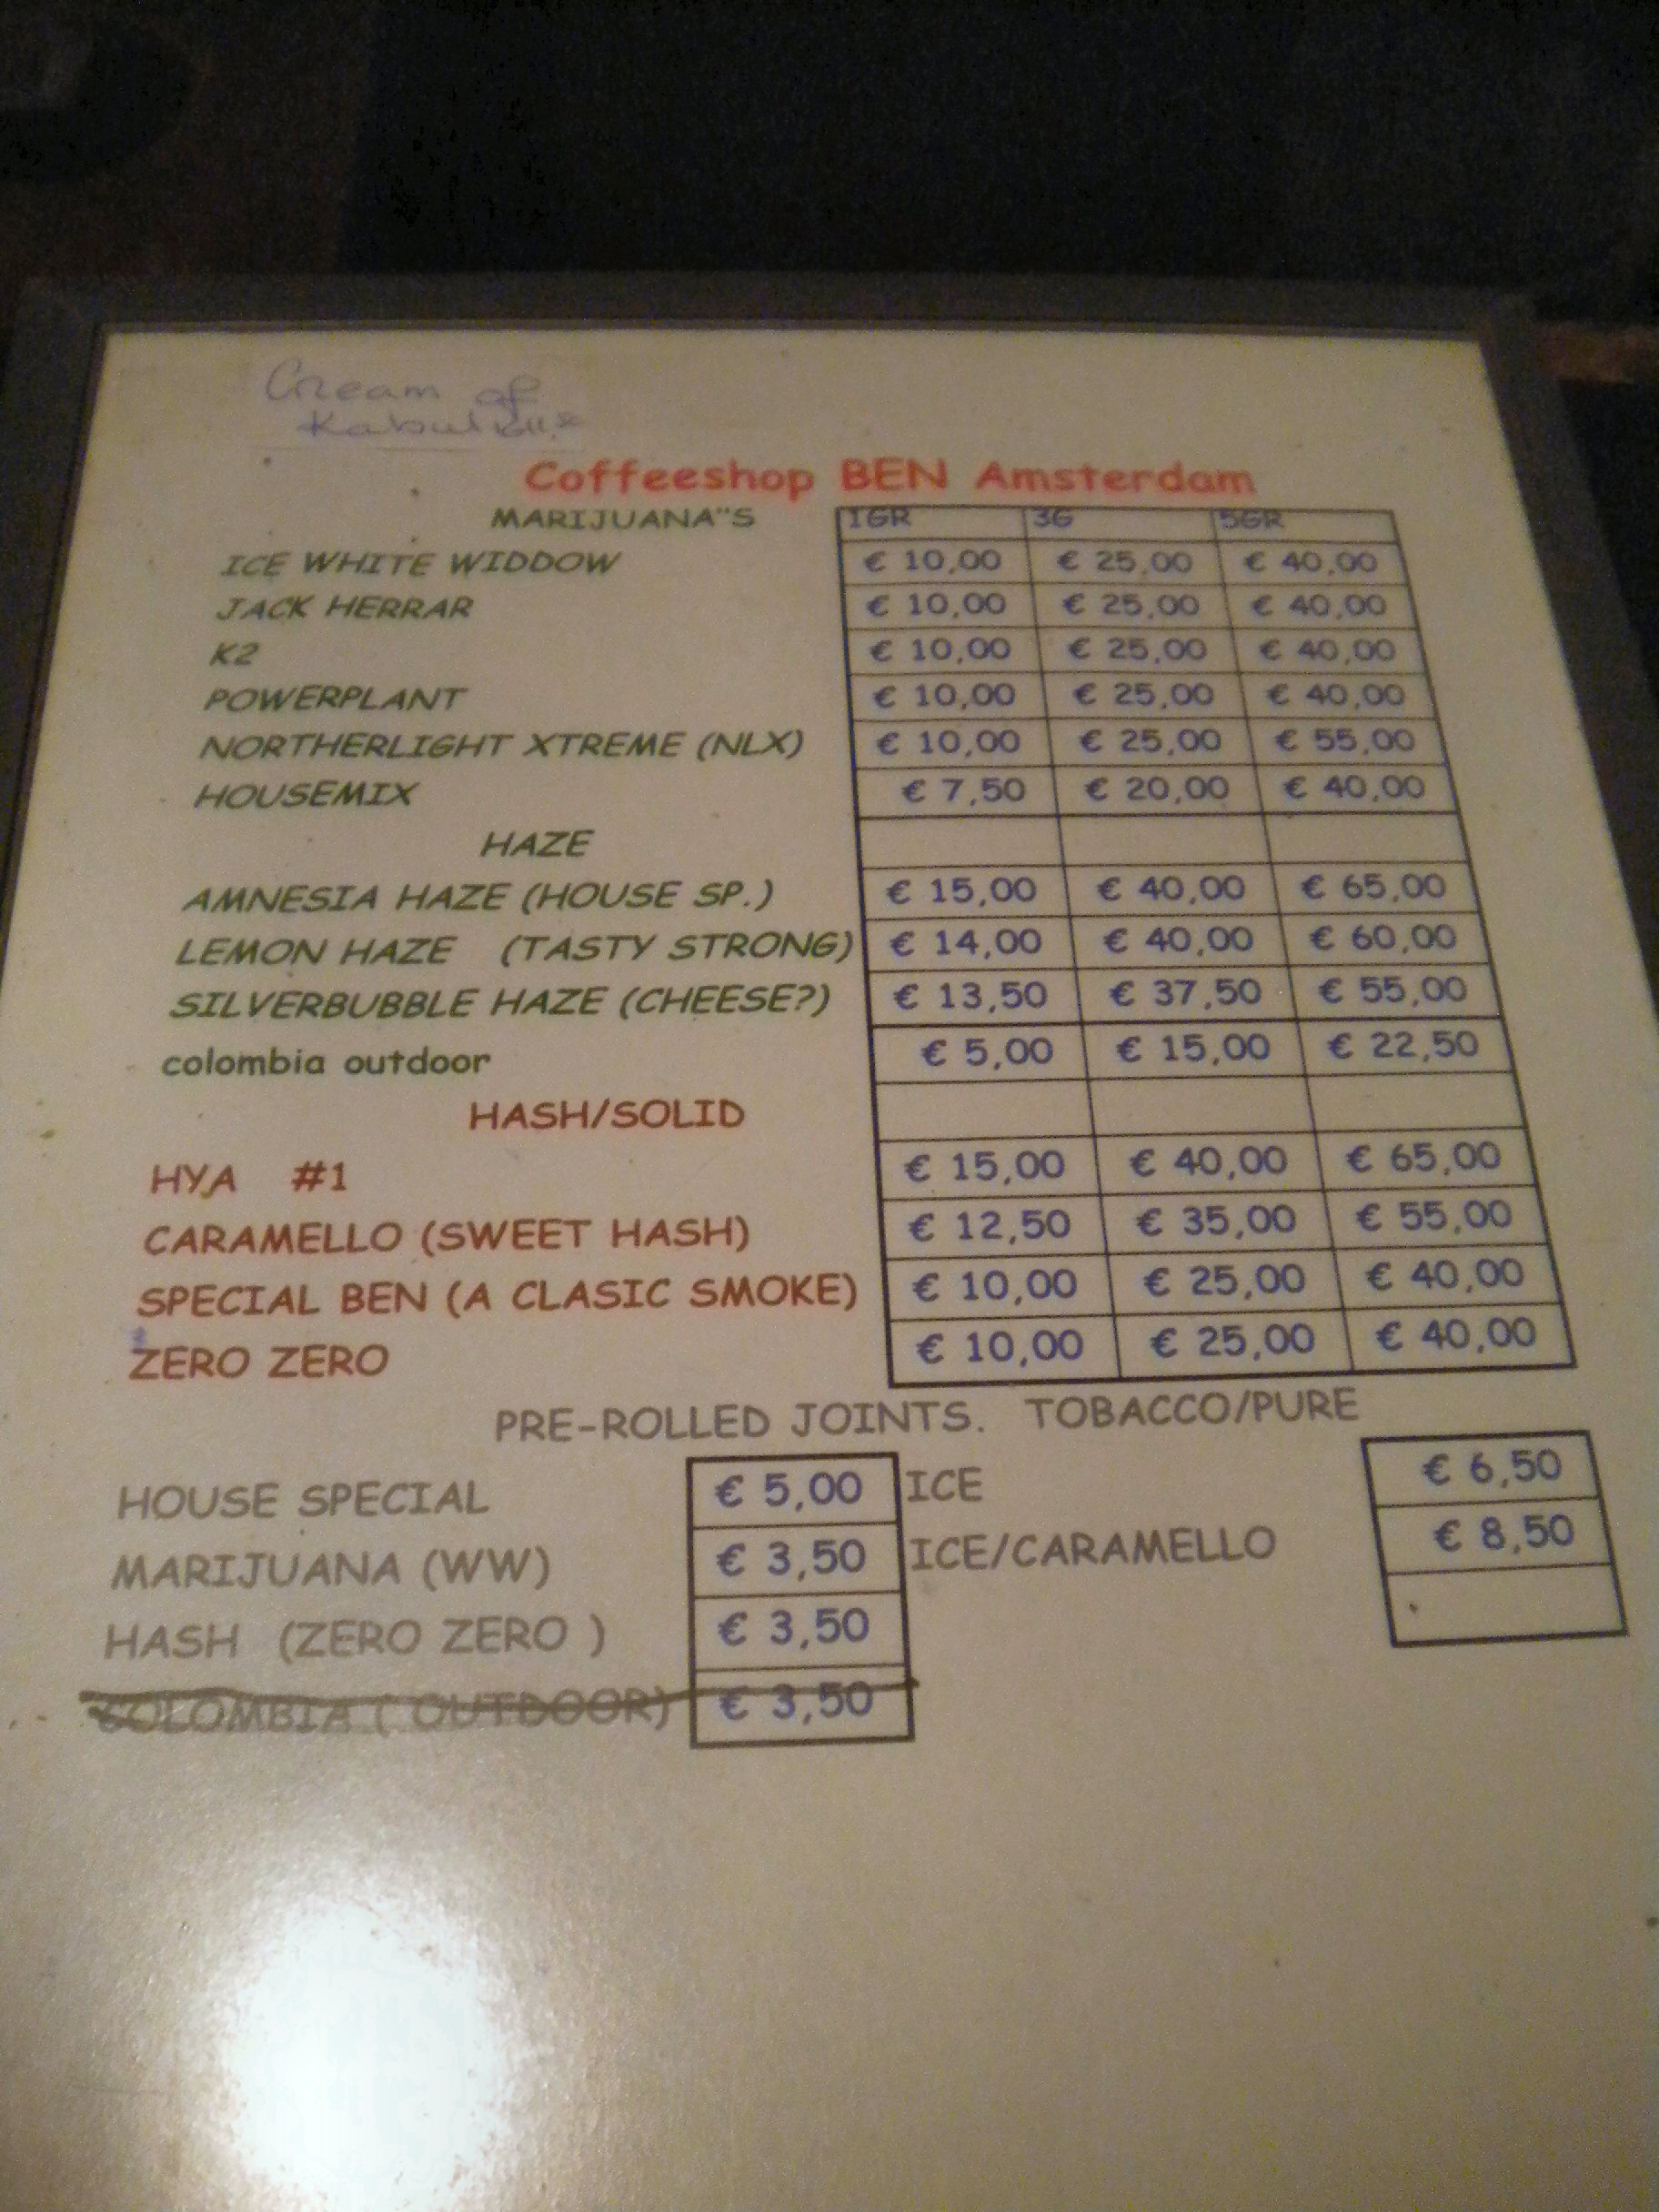 Cream of
Coffeeshop BEN Amsterdam
MARIJUANA"S 1GR 3G 5GR
ICE WHITE WIDDOW € 10,00 € 25,00 € 40,00
JACK HERRAR € 10,00 € 25,00 € 40,00
K2 € 10,00 € 25,00 € 40,00
POWERPLANT € 10,00 € 25,00 € 40,00
NORTHERLIGHT XTREME (NLX) € 10,00 € 25,00 € 55,00
HOUSEMIX € 7,50 € 20,00 € 40,00
HAZE
AMNESIA HAZE (HOUSE SP.) € 15,00 € 40,00 € 65,00
LEMON HAZE (TASTY STRONG) € 14,00 € 40,00 € 60,00
SILVERBUBBLE HAZE (CHEESE?) € 13,50 € 37,50 € 55,00
colombia outdoor € 5,00 € 15,00 € 22,50
HASH/SOLID
HYA #1 € 15,00 € 40,00 € 65,00
CARAMELLO (SWEET HASH) € 12,50 € 35,00 € 55,00
SPECIAL BEN (A CLASIC SMOKE) € 10,00 € 25,00 € 40,00
ZERO ZERO € 10,00 € 25,00 € 40,00
PRE-ROLLED JOINTS. TOBACCO/PURE
HOUSE SPECIAL € 5,00 ICE € 6,50
MARIJUANA (WW) € 3,50 ICE/CARAMELLO € 8,50
HASH (ZERO ZERO ) € 3,50
COLOMBIA ( OUTDOOR) € 3,50